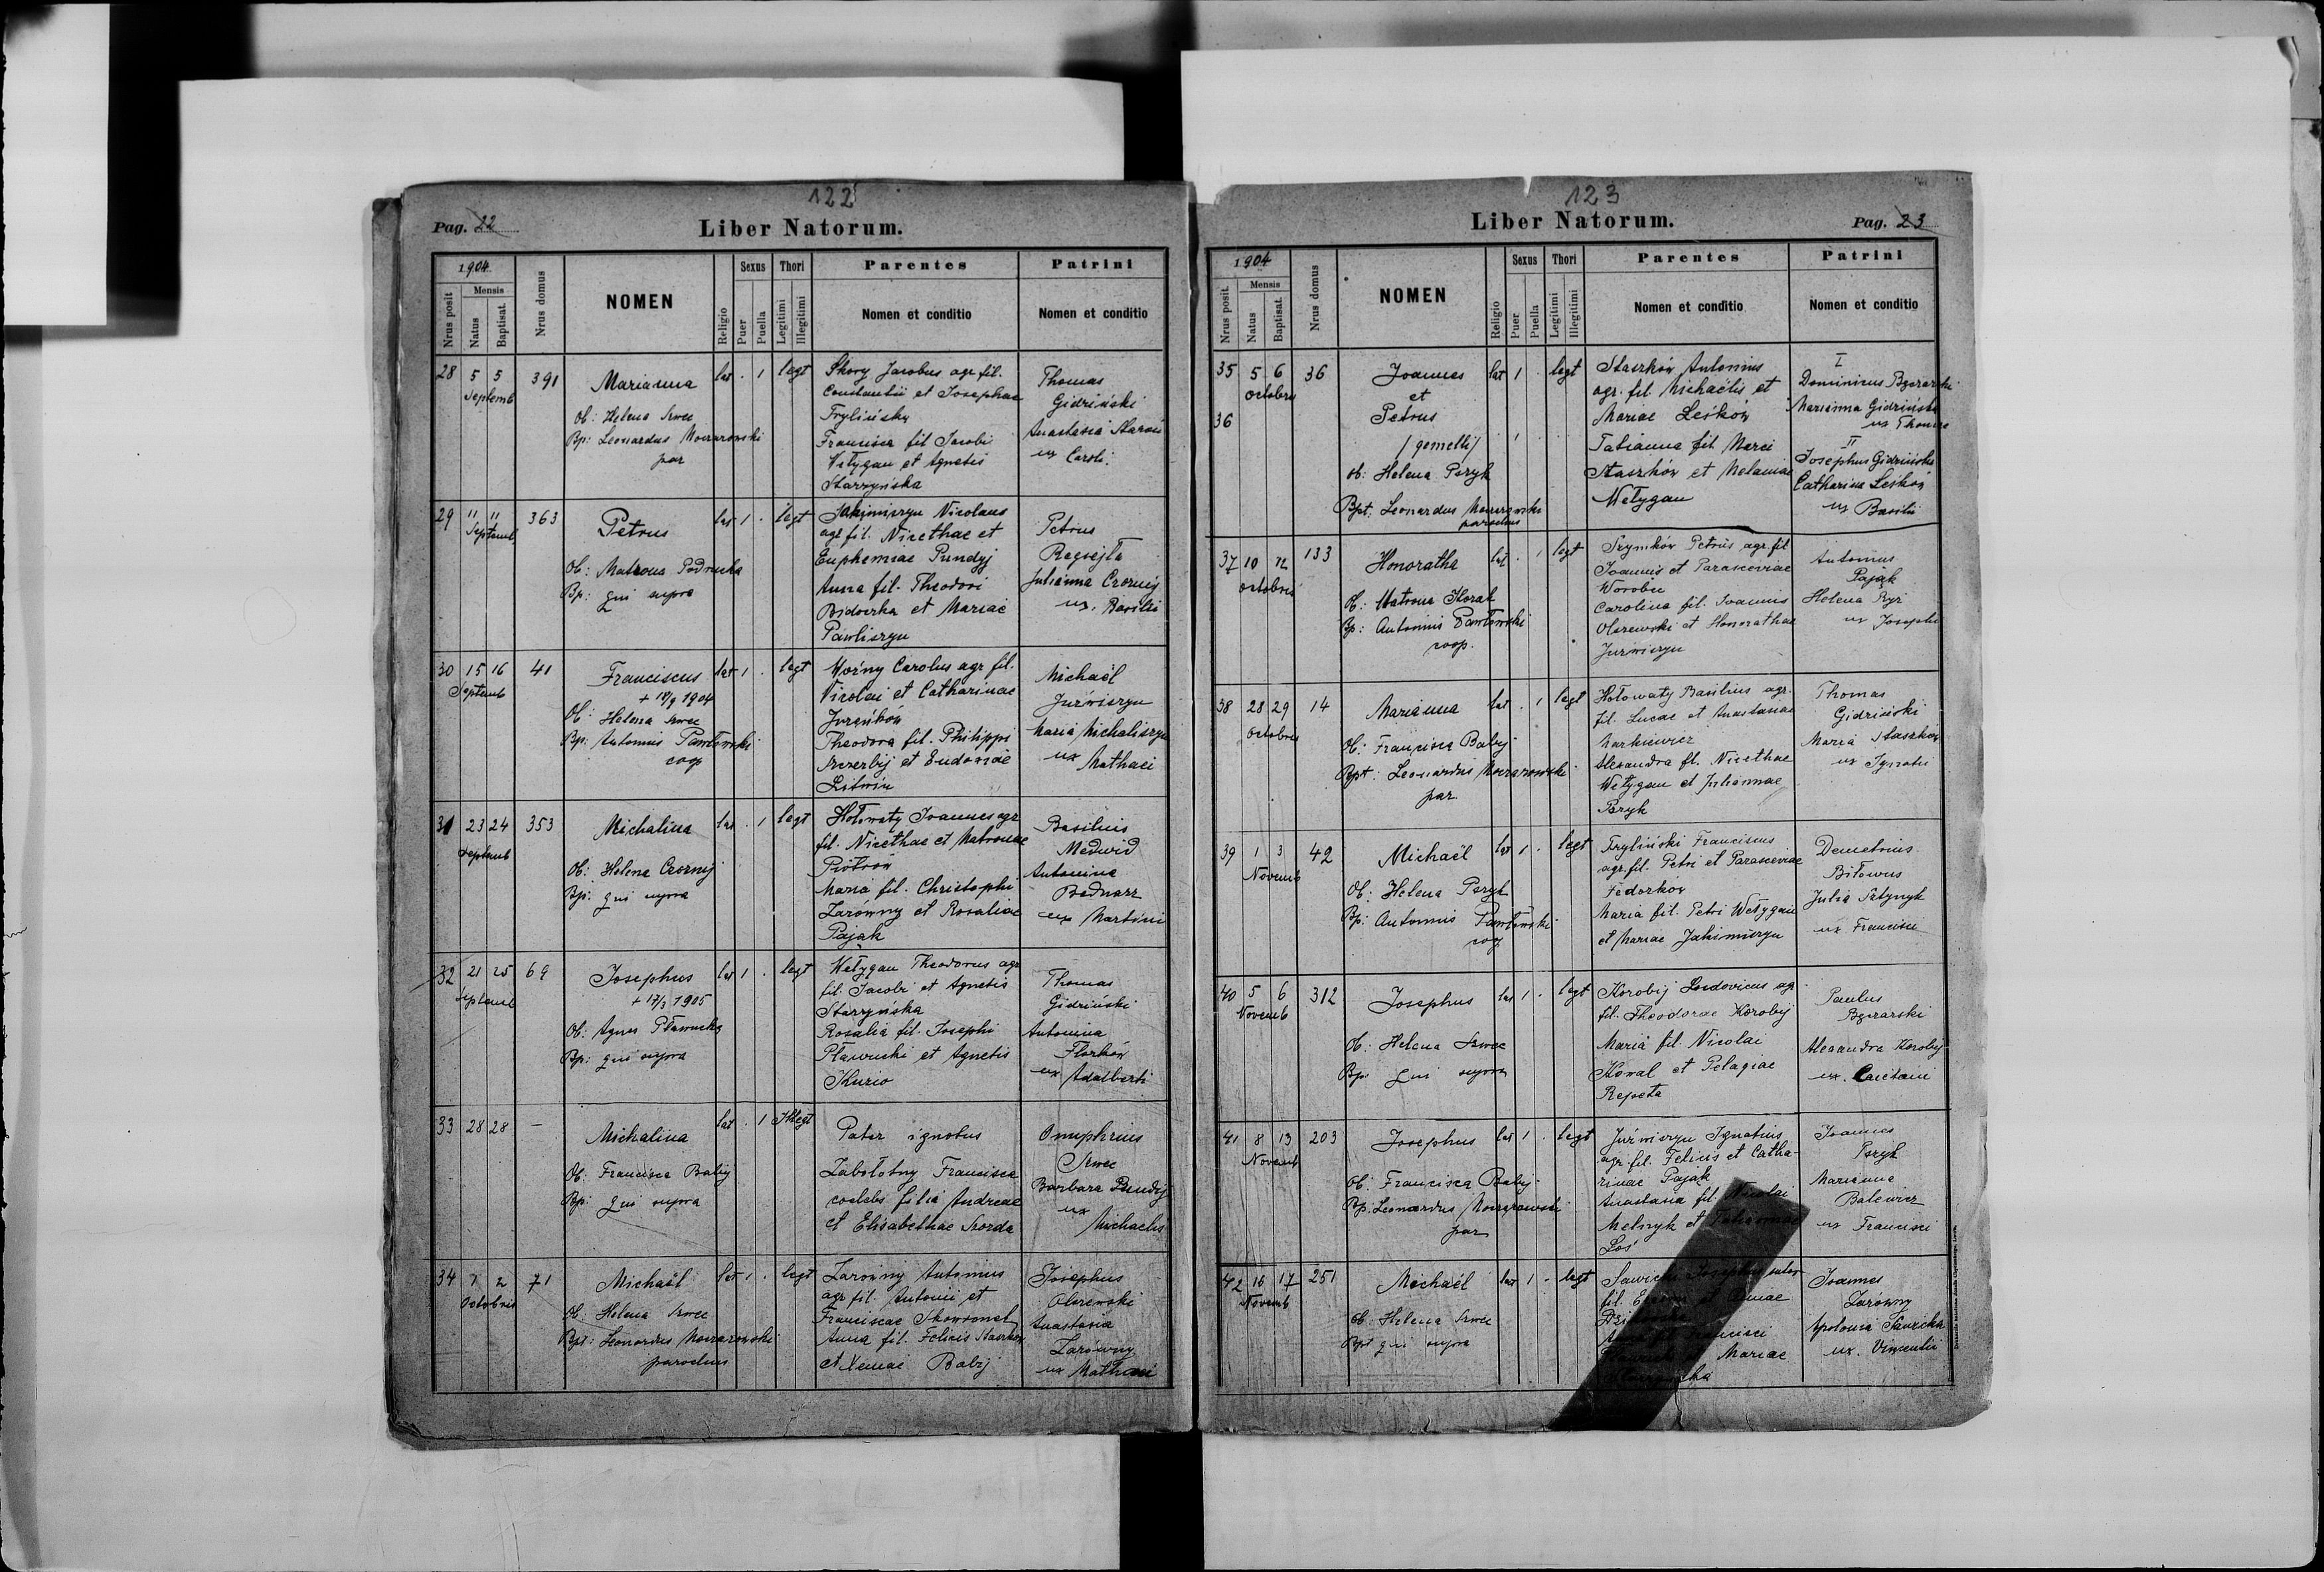 122
Pag. 22
Liber Natorum.
1904
Nrus posit
Mensis
Natus
Baptisat.
Nrus domus
NOMEN
Religio
Sexus
Puer
Puella
Thori
Legitimi
Illegitimi
Parentes
Nomen et conditio
Patrini
Nomen et conditio
28 5 5 391 Marianna lat . 1 legt
Septemb
Ob: Helena Szwec
Bp: Leonardus
par
Skory Jacobus agr. fil.
Constantii et Josephae
Trylińska
Francisca fil. Jacobi
Wełygan et Agnetis
Starzyńska
Thomas
Gidziński
Anastasia
ux Caroli.
29 11 11 363 Petrus lat 1 . legt
Septemb
Ob: Matrona
Bp: qui supra
Jakimiszyn Nicolaus
agr. fil. Nicethae et
Euphemiae Pundyj
Anna fil. Theodori
et Mariae
Pawliszyn
Petrus
Julianna Czornij
ux. Basilii
30 15 16 41 Franciscus lat 1 . legt
Septemb
+ 18/9 1904
Ob: Helena Szwec
Bp: Antonius Pawłowski
coop
Woźny Carolus agr. fil.
Nicolai et Catharinae
Theodora fil. Philippi
et Eudoxiae
Litwin
Michaël
Juźwiszyn
Maria Michaliszyn
ux Mathaei
31 23 24 353 Michalina lat . 1 legt
Septemb
Ob: Helena Czornij
Bp: qui supra
Hołowaty Joannes agr
fil. Nicethae et Matronae
Piotrów
Maria fil. Christophi
Zarówny et Rosaliae
Pająk
Basilius
Medwid
Antonina
Bednarz
ux Martini
32 21 25 69 Josephus lat 1 . legt
Septemb
+ 17/3 1905
Ob: Agnes Pławucka
Bp: qui supra
Wełygan Theodorus agr
fil. Jacobi et Agnetis
Starzyńska
Rosalia fil. Josephi
Pławucki et Agnetis
Kurio
Thomas
Gidziński
Antonina
Florków
ux Adalberti
33 28 28 – Michalina lat . 1 Illegt
Ob: Francisca Babij
Bp: qui supra
Pater ignotus
Zabołotny Francisca
coelebs filia Andreae
et Elisabethae
Onuphrius
Szwec
Barbara Pundij
ux
Michaelis
34 1 2 71 Michaël lat 1 . legt
Octobris
Ob: Helena Szwec
Bpt: Leonardus
parochus
Zarówny Antonius
agr. fil. Antonii et
Franciscae Skowronek
Anna fil. Felicis Staszków
et Babij
Josephus
Olszewski
Anastasia
Zarówny
ux Mathaei
123
Liber Natorum.
Pag. 23
1904
Nrus posit.
Mensis
Natus
Baptisat.
Nrus domus
NOMEN
Religio
Sexus
Puer
Puella
Thori
Legitimi
Illegitimi
Parentes
Nomen et conditio
Patrini
Nomen et conditio
35 5 6 36 Joannes lat 1 . legt
Octobris
et
36 Petrus
/gemelli/ 1
Ob: Helena Pszyk
Bpt: Leonardus
parochus
Staszków Antonius
agr. fil. Michaëlis et
Mariae Leśków
Tatianna fil. Marci
Staszków et Melaniae
Wełygan
I
Dominicus
Marianna Gidzińska
ux Thomae
II
Josephus Gidziński
Catharina Leśków
ux Basilii
37 10 12 133 Honoratha lat . 1 legt
Octobris
Ob: Matrona Koral
Bp: Antonius Pawłowski
coop.
Szymków Petrus agr. fil
Joannis et Parasceviae
Worobec
Carolina fil. Joannis
Olszewski et Honorathae
Juźwiszyn
Antonius
Pająk
Helena
ux Josephi
38 28 29 14 Marianna lat . 1 legt
Octobris
Ob: Francisca Babij
Bpt: Leonardus
par.
Hołowaty Basilius agr.
fil. Lucae et Anastasiae
Markiewicz
Alexandra fil. Nicethae
Wełygan et Juliannae
Pszyk
Thomas
Gidziński
Maria Staszków
ux Ignatii
39 1 3 42 Michaël lat 1 . legt
Novemb
Ob: Helena Pszyk
Bp: Antonius Pawłowski
coop
Tryliński Franciscus
agr. fil. Petri et Parasceviae
Fedorków
Maria fil. Petri Wełygan
et Mariae Jakimiszyn
Demetrius
Biłowus
Julia
ux Francisci
40 5 6 312 Josephus lat 1 . legt
Novemb
Ob: Helena Szwec
Bp: qui supra
Korobij Ludovicus agr
fil. Theodorae Korobij
Maria fil. Nicolai
Kowal et Pelagiae
Repeta
Paulus
Alexandra Korobij
ux. Caietani
41 8 13 203 Josephus lat 1 . legt
Novemb
Ob: Francisca Babij
Bp: Leonardus
par
Juźwiszyn Ignatius
agr. fil. Felicis et Catha-
rinae Pająk
Anastasia fil. Nicolai
Melnyk et Tatiannae
Łoś
Joannes
Pszyk
Marianna
Balewicz
ux Francisci
42 16 17 251 Michaël lat 1 . legt
Novemb
Ob: Helena Szwec
Bpt qui supra
Sawicki Josephus sutor
fil. et Annae
Anna fil. Francisci
Mariae
Joannes
Zarówny
Apolonia Sawicka
ux. Vincentii